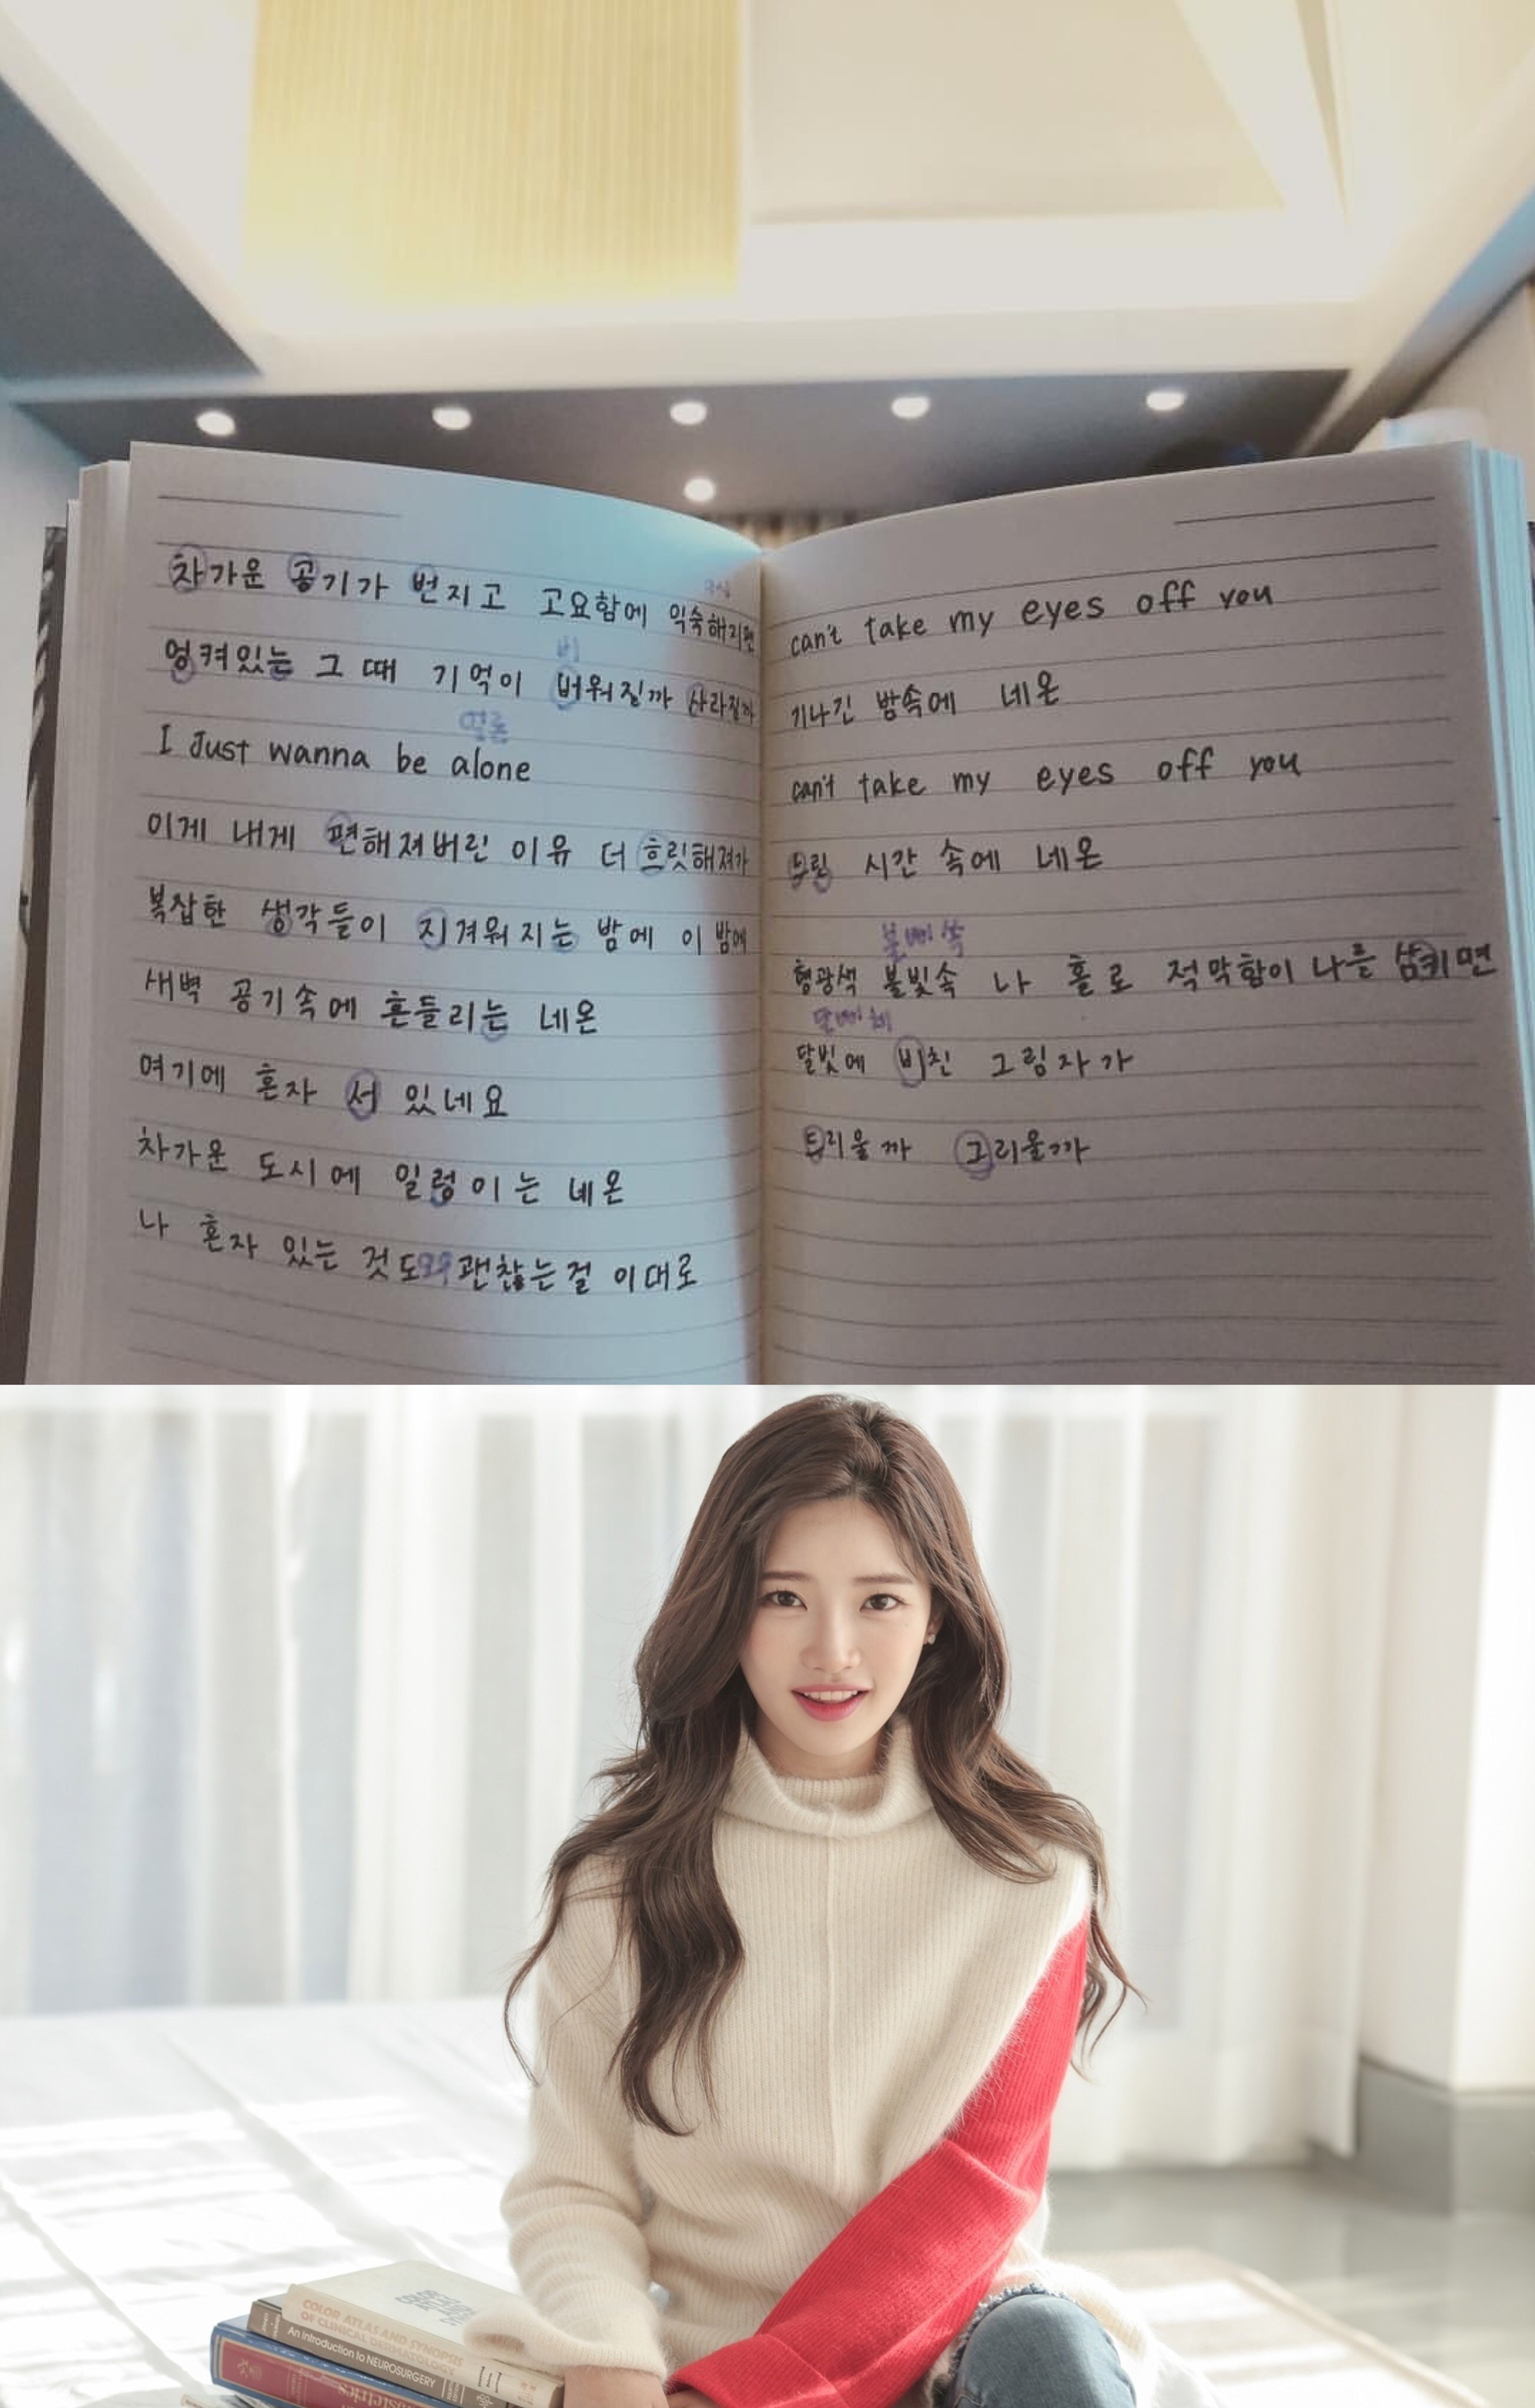 차가운 공기가 번지고 고요함에 익숙해지면
비
엉켜있는 그 때 기억이 버워질까 사라질까
I Just wanna be alone
이게 내게 편해져버린 이유 더 흐릿해져가
복잡한 생각들이 지겨워지는 밤에 이 밤에
새벽 공기속에 흔들리는 네온
여기에 혼자 서 있네요
차가운 도시에 일렁이는 네온
나 혼자 있는 것도 괜찮는걸 이대로
can't take my eyes off you
기나긴 밤속에 네온
can't take my eyes off you
시간 속에 네온
불삐쏙
형광색 불빛속 나 홀로 적막함이 나를 삼키면
달빛에 비친 그림자가
드리울까 그리울까
COLOR ATLAS AND SYNOPSIS
OF CLINICAL DERMATOLOGY
An Introduction to NEUROSURGERY